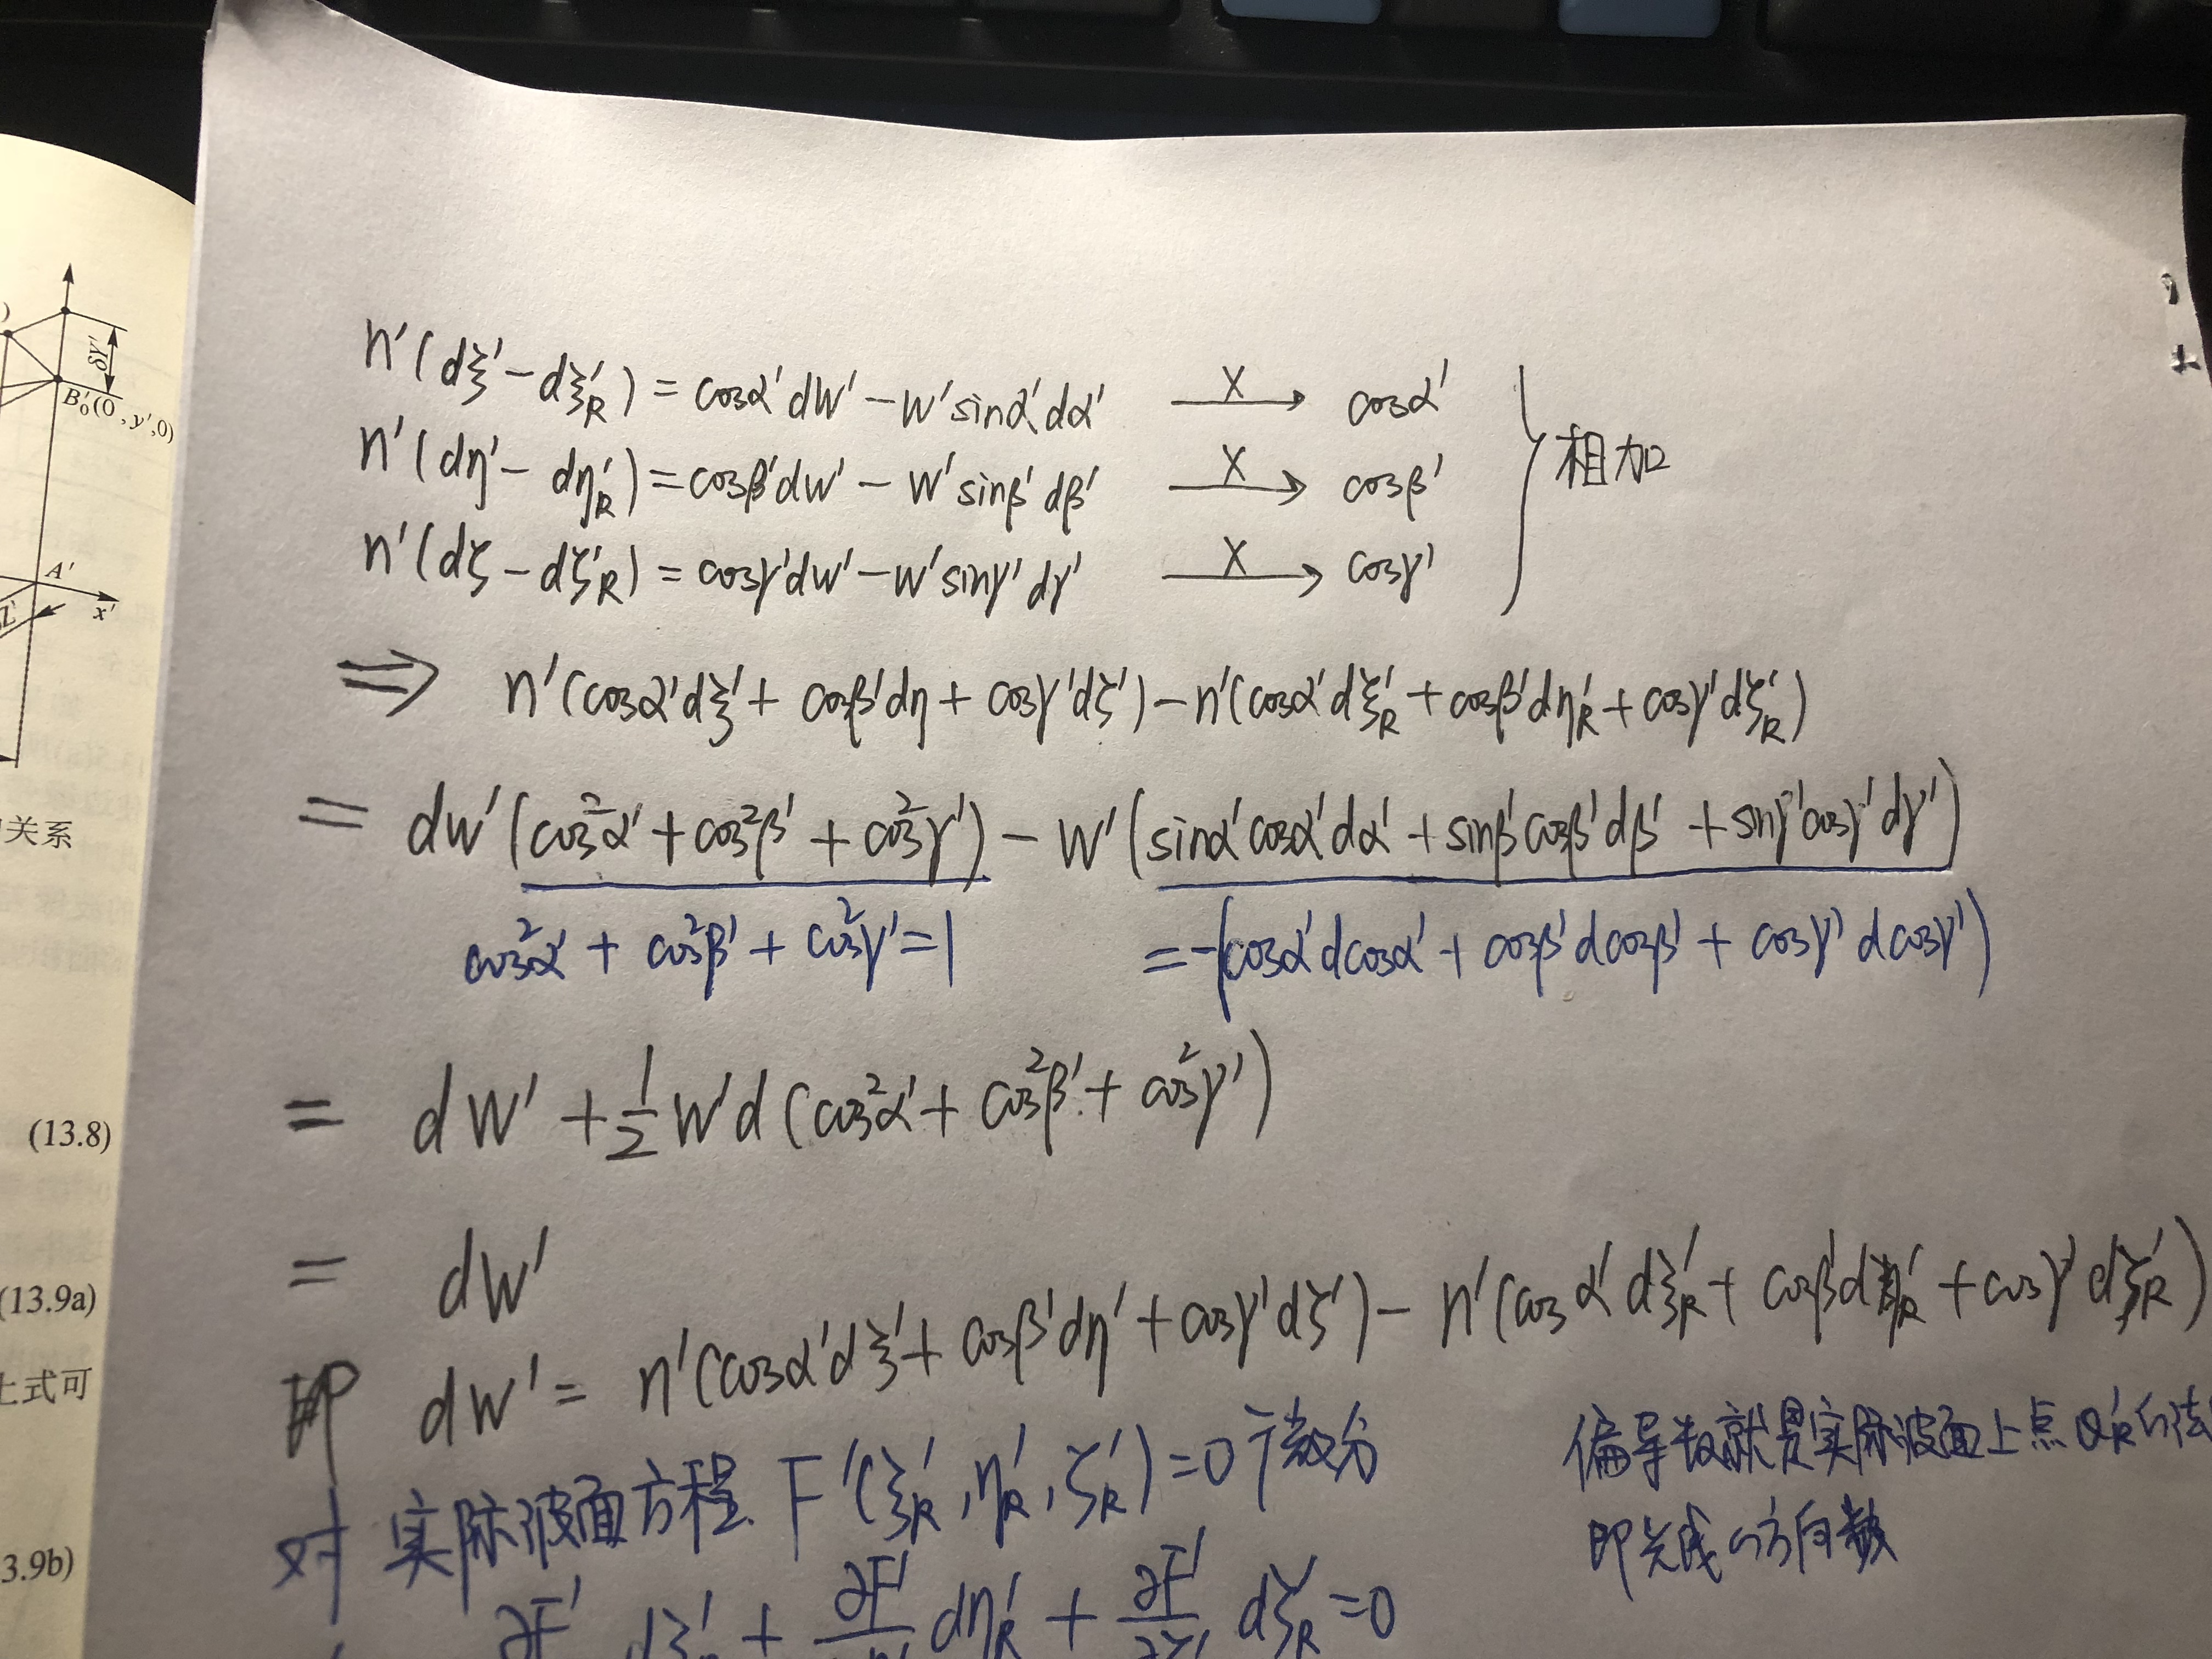 B₀'(0, y', 0)
δY'
A'
x'
关系
(13.8)
(13.9a)
上式可
3.9b)
n'(dξ' - dξ'_R) = cosα'dW' - W'sinα'dα' —×→ cosα'
n'(dη' - dη'_R) = cosβ'dW' - W'sinβ'dβ' —×→ cosβ'
n'(dζ' - dζ'_R) = cosγ'dW' - W'sinγ'dγ' —×→ cosγ'
} 相加
⇒ n'(cosα'dξ' + cosβ'dη + cosγ'dζ') - n'(cosα'dξ'_R + cosβ'dη'_R + cosγ'dζ'_R)
= dW'(cos²α' + cos²β' + cos²γ') - W'(sinα'cosα'dα' + sinβ'cosβ'dβ' + sinγ'cosγ'dγ')
cos²α' + cos²β' + cos²γ' = 1 = -(cosα'dcosα' + cosβ'dcosβ' + cosγ'dcosγ')
= dW' + 1/2 W'd(cos²α' + cos²β' + cos²γ')
= dW'
即 dW' = n'(cosα'dξ' + cosβ'dη' + cosγ'dζ') - n'(cosα'dξ'_R + cosβ'dη'_R + cosγ'dζ'_R)
对实际波面方程 F'(ξ'_R, η'_R, ζ'_R) = 0 微分 偏导数就是实际波面上点 Q'_R 法
即 方向数
∂F' dξ' + ∂F' dη'_R + ∂F' dζ'_R = 0